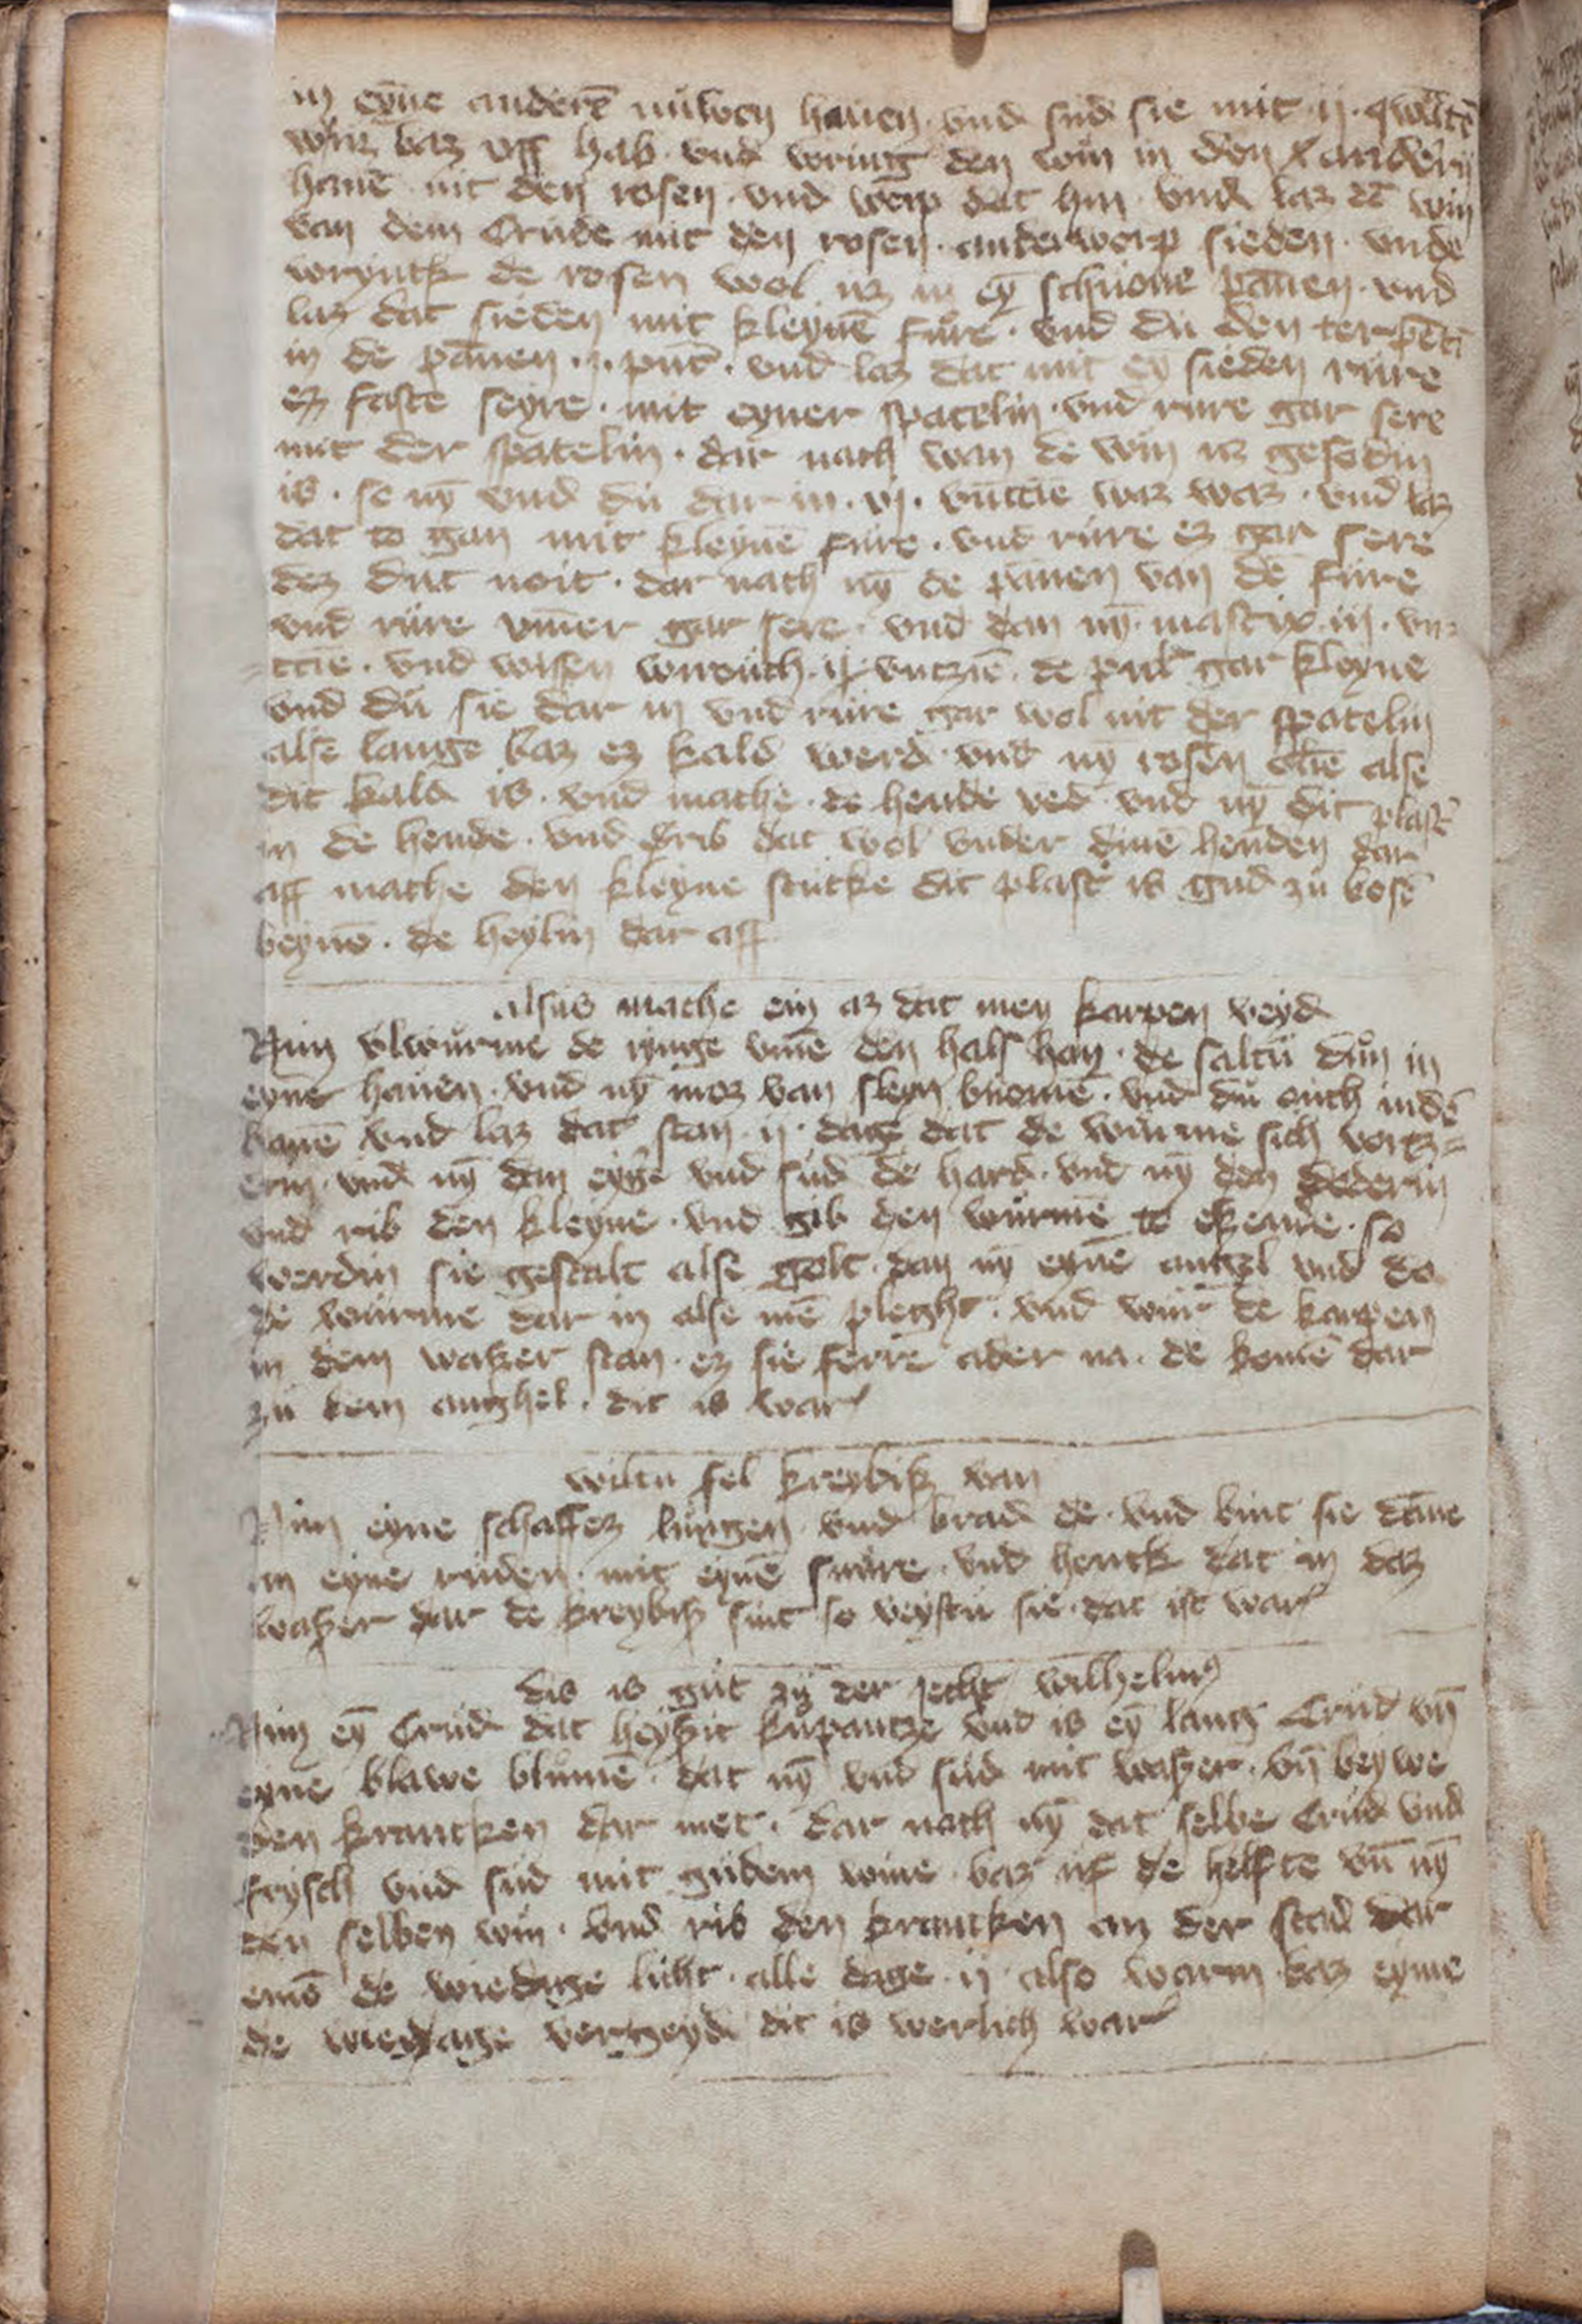 in eyne anderē nuwen hauen · vnd sud sie mit · ij · qwartē
wins baz vff hab · vnd wring den win in den anderin
hauē mit den rosen · vnd werp dat hin · vnd laz dē win
van dem Crude mit den rosen · anderwerp sieden · vnde
wryntk de rosen wol uz in eȳ schuone pannen · vnd
laz dat sieden mit kleynē fure · vnd du den terpētī
in de pannen · j · punt · vnd laz dat mit eȳ sieden rure
ez faste seyre · mit eyner spatelin · vnd rure gar sere
mit der spatelin · dar nach wan de win uz gesodin
is · so nȳ vnd du dar in · vj · vnttie waz · vnd laz
dat to gan mit kleynē fure · vnd rure ez gar sere
dez dut noit · dar nach nȳ de pannen van dē fure
vnd rure vmer gar sere · vnd dan nȳ mastix · iij · vn
ttie · vnd wisen wirouch · ij · vntzie · de puluer gar kleyne
vnd du sie dar in vnd rure gar wol mit der spatelin
alse lange baz ez kald werd · vnd nȳ rosen olie alse
dit kald is · vnd mache · de hende ved · vnd nȳ dit plast
in de hende · vnd drib dat wol vnder dinē henden dar
aff mache den kleyne stucke dit plast is gud zu bosē
beynē · de heylin dar aff
alsus mache ein az dat men karpen veyd
Nim vlwurme de ringe vmē den hals han · de saltu dun in
eyne hauen · vnd nȳ moz van sleyn buomē · vnd du ouch in dē
hauē vnd laz dat stan · ij · dage dat de wurme sich vortz=
erin · vnd nȳ dan eyge vnd sud de hard · vnd nȳ den dederin
vnd rib den kleyne · vnd gib den wurmē to etzende · so
werdin sie gestalt alse golt · dan nȳ eynē angel vnd do
de wurme dar in alse mē pleght · vnd wur de karpen
in dem watzer stan · ez sie ferre ader na · de komē dar
zu dem anghel · dit is war
wiltu fel kreybiz van
Nim eyne schaffez lungen vnd brad de · vnd bint sie dāne
an eyne ruden · mit eynē snure · vnd henck dat in daz
watzer dar de kreybiz sint so veystu sie · dat ist war
dis is gut zu der jecht wilhelmus
Nim eȳ Crud dat heyzit kupantze vnd is eȳ lang Crud vn̄
eyne blawe blumē · dat nȳ vnd sud mit watzer · vn̄ beywe
den krancken dar met · dar nach nȳ dat selbe Crud vnd
frysch vnd sud mit gudem wine · baz uf de helfte vn̄ nȳ
den selben win · vnd rib den krancken an der stad dar
emē de wiedage licht · alle dage · ij · also warm baz eyme
de wiedage vertzeyd dit is werlich war